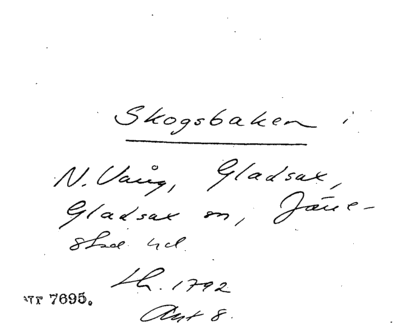 Skogsbaken i
N. Vång, Gladsax,
Gladsax sn, Järre-
stad hd.
Lh. 1792
Akt 8.
NTT 7695.